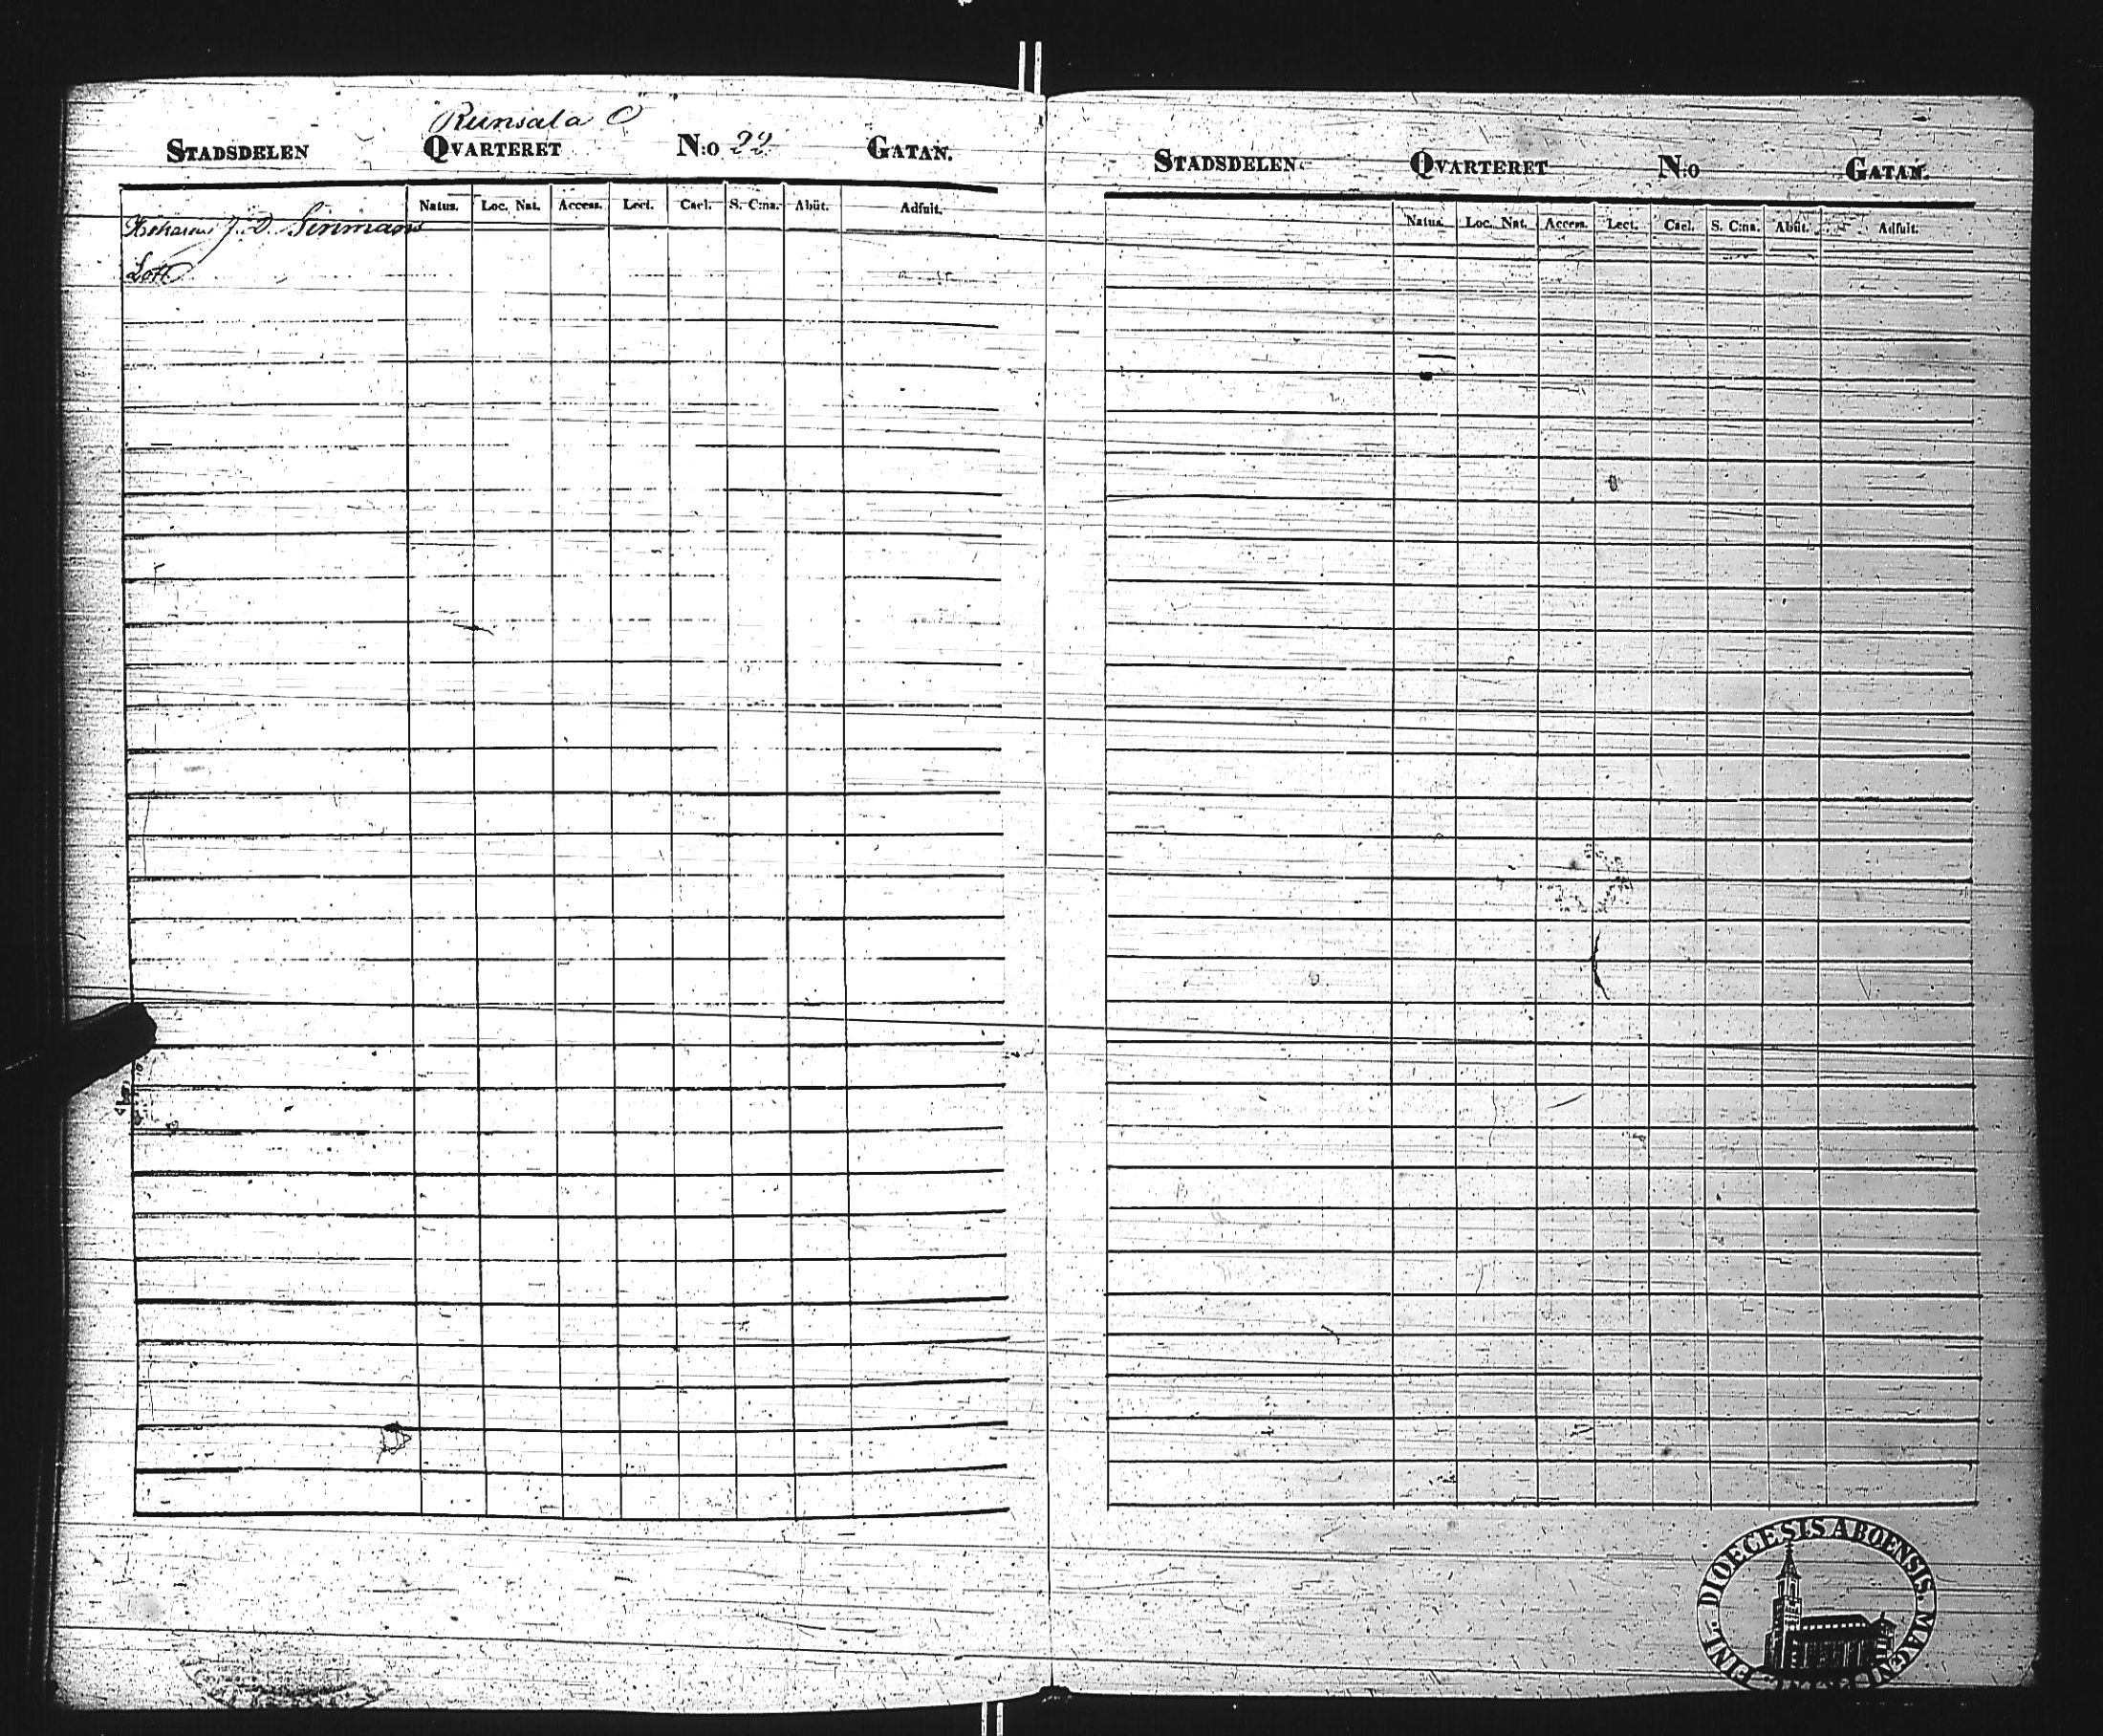 Runsala Ö
STADSDELEN QVARTERET N:o 22 GATAN.
Natus. Loc. Nat. Access. Lect. Cael. S. C:na. Abiit. Adfuit.
J. D. Sinmans
Lott
STADSDELEN QVARTERET N:o GATAN.
Natus. Loc. Nat. Access. Lect. Cael. S. C:na. Abiit. Adfuit.
DIOECESIS ABOENSIS. MAGNI
FINL.